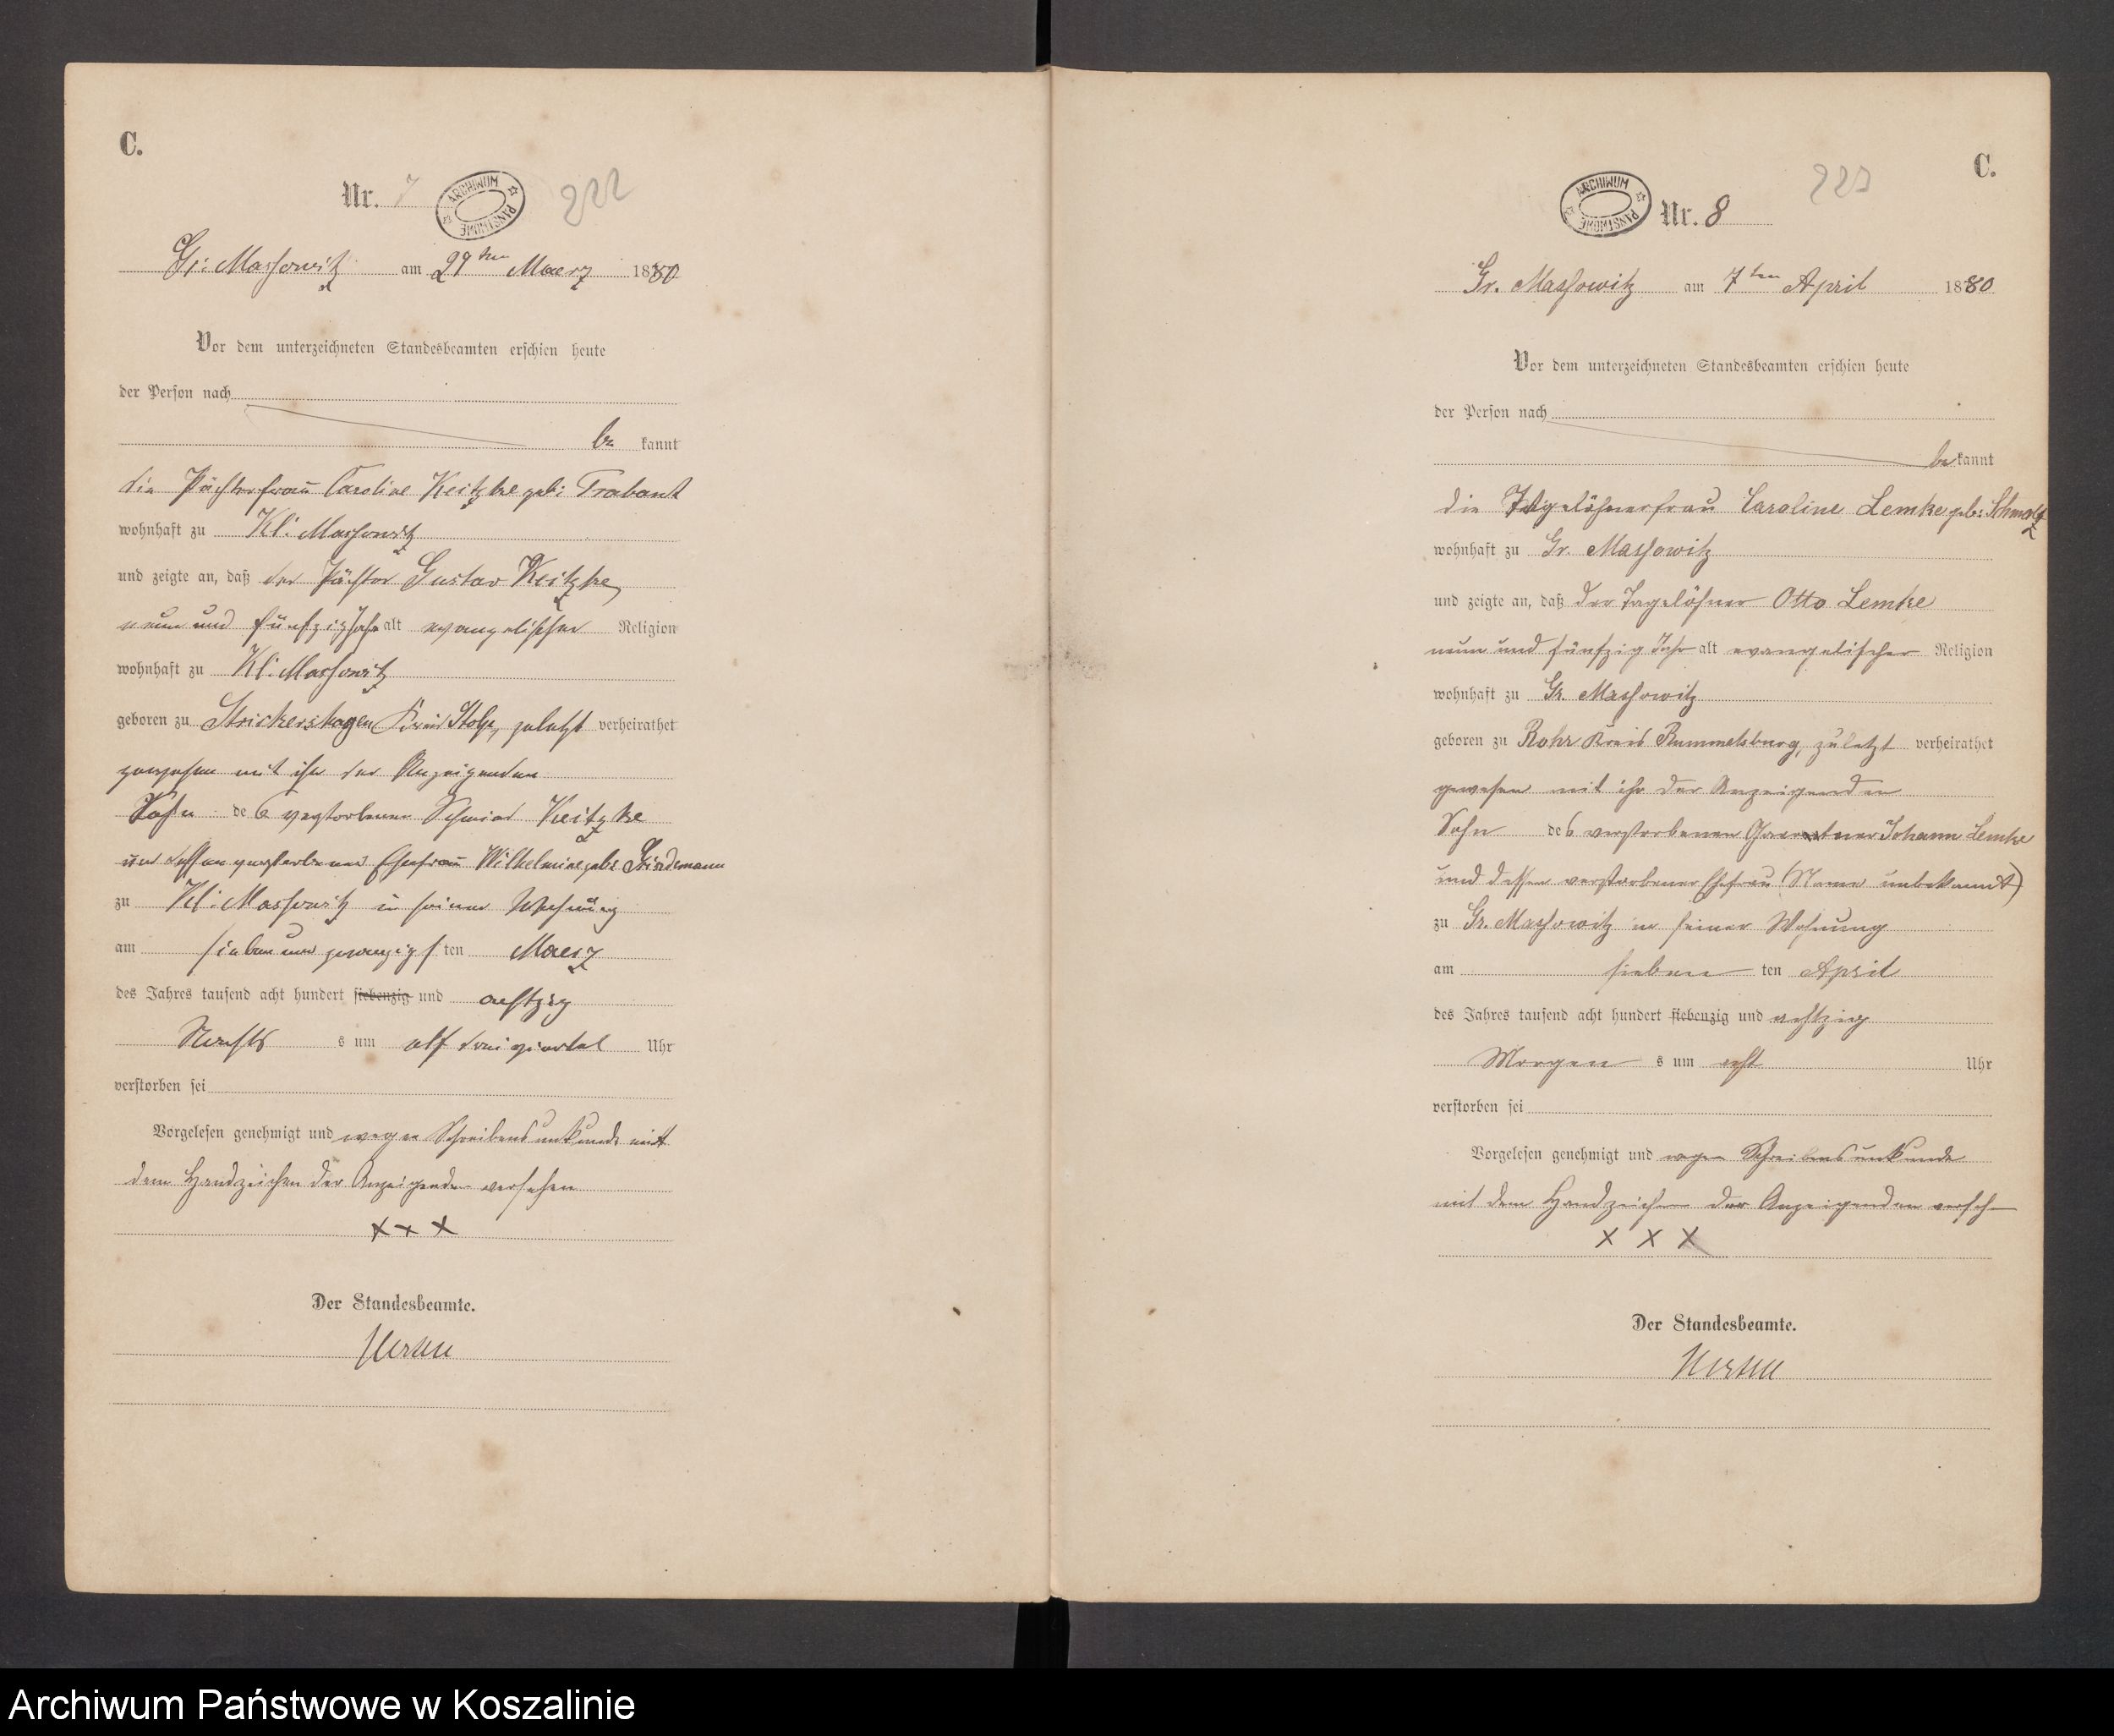 C.
Nr. 7
ARCHIWUM PAŃSTWOWE
222
Gr. Massowitz am 29ten Maerz 1880
Vor dem unterzeichneten Standesbeamten erschien heute
der Person nach
be kannt
die Pächterfrau Caroline Keitzke geb: Trabant
wohnhaft zu Kl. Massowitz
und zeigte an, daß der Pächter Gustav Keitzke,
neun und fünfzig Jahr alt evangelischer Religion
wohnhaft zu Kl. Massowitz
geboren zu Strickershagen Kreis Stolp, zuletzt verheirathet
gewesen mit ihr der Anzeigenden
Sohn des verstorbenen Schmied Keitzke
und dessen verstorbenen Ehefrau Wilhelmine geb:
zu Kl. Massowitz in seiner Wohnung
am sieben und zwanzigsten Maerz
des Jahres tausend acht hundert siebenzig und achtzig
Nachts um elf dreiviertel Uhr
verstorben sei
Vorgelesen genehmigt und wegen Schreibensunkunde mit
dem Handzeichen der Anzeigenden versehen
x x x
Der Standesbeamte.
C.
ARCHIWUM PAŃSTWOWE
Nr. 8
223
Gr. Massowitz am 7ten April 1880
Vor dem unterzeichneten Standesbeamten erschien heute
der Person nach
be kannt
die Tagelöhnerfrau Caroline Lemke geb: Schmalz
wohnhaft zu Gr. Massowitz
und zeigte an, daß der Tagelöhner Otto Lemke
neun und fünfzig Jahr alt evangelischer Religion
wohnhaft zu Gr. Massowitz
geboren zu Rohr Kreis Rummelsburg, zuletzt verheirathet
gewesen mit ihr der Anzeigenden
Sohn des verstorbenen Johann Lemke
und dessen verstorbener Ehefrau (Name unbekannt)
zu Gr. Massowitz in seiner Wohnung
am sieben ten April
des Jahres tausend acht hundert siebenzig und achtzig
Morgen s um acht Uhr
verstorben sei
Vorgelesen genehmigt und wegen Schreibensunkunde
mit dem Handzeichen der Anzeigenden verseh
x x x
Der Standesbeamte.
Archiwum Państwowe w Koszalinie